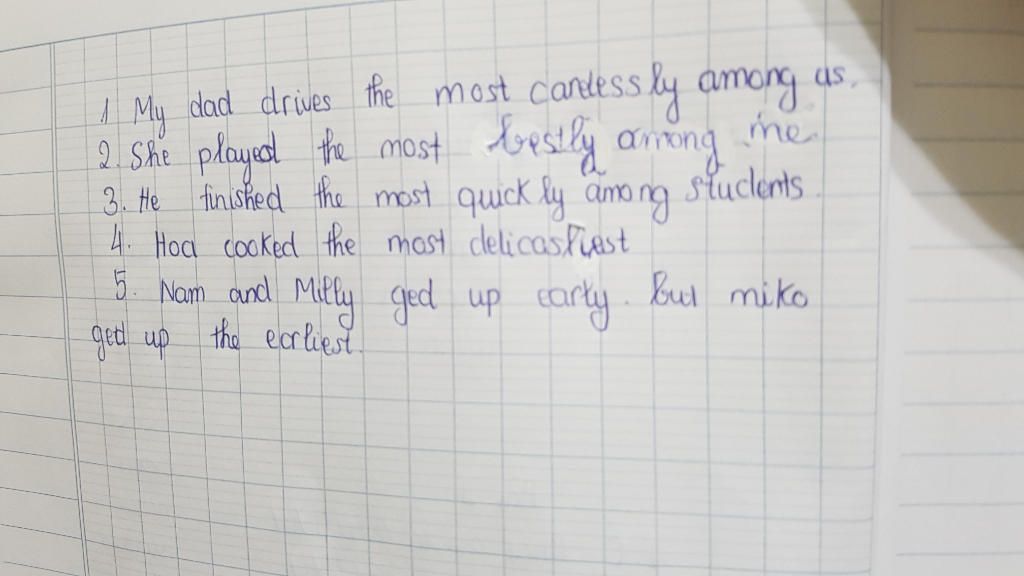 1 My dad drives the most candessly among us.
2. She played the most bestly among me.
3. He finished the most quickly among students.
4. Hoa cooked the most delicastiest
5. Nam and Milly ged up early. But miko
ged up the eerliest.